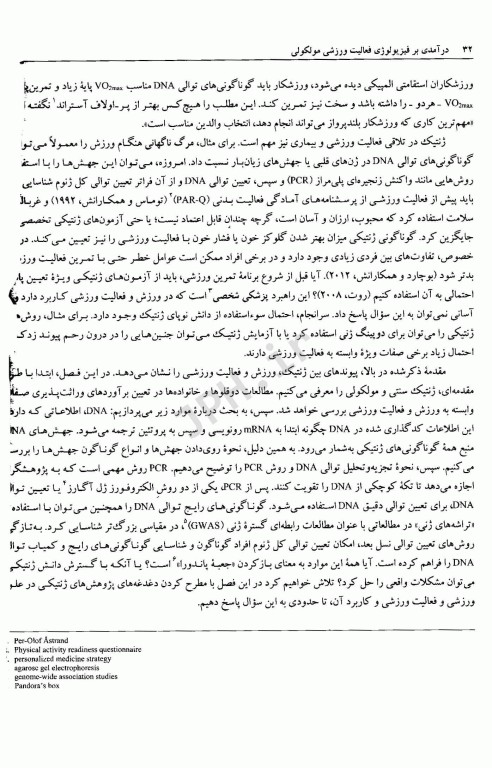 ۳۲ درآمدی بر فیزیولوژی فعالیت ورزشی مولکولی
ورزشکاران استقامتی المپیکی دیده می‌شود، ورزشکار باید گوناگونی‌های توالی DNA مناسب VO2max پایهٔ زیاد و تمرین‌پذیری
VO2max ـ هردو ـ را داشته باشد و سخت نیز تمرین کند. این مطلب را هیچ‌کس بهتر از پر-اولاف آستراند۱ نگفته
«مهم‌ترین کاری که ورزشکار بلندپرواز می‌تواند انجام دهد، انتخاب والدین مناسب است».
ژنتیک در تلاقی فعالیت ورزشی و بیماری نیز مهم است. برای مثال، مرگ ناگهانی هنگام ورزش را معمولاً می‌توا
گوناگونی‌های توالی DNA در ژن‌های قلبی یا جهش‌های زیان‌بار نسبت داد. امروزه، می‌توان این جهش‌ها را با استف
روش‌هایی مانند واکنش زنجیره‌ای پلی‌مراز (PCR) و سپس، تعیین توالی DNA و از آن فراتر تعیین توالی کل ژنوم شناسایی
باید پیش از فعالیت ورزشی از پرسشنامه‌های آمادگی فعالیت بدنی (PAR-Q)۲ (توماس و همکارانش، ۱۹۹۲) و غربال
سلامت استفاده کرد که محبوب، ارزان و آسان است، گرچه چندان قابل اعتماد نیست؛ یا حتی آزمون‌های ژنتیکی تخصصی
جایگزین کرد. گوناگونی ژنتیکی میزان بهتر شدن گلوکز خون یا فشار خون با فعالیت ورزشی را نیز تعیین می‌کند. در
خصوص، تفاوت‌های بین فردی زیادی وجود دارد و در برخی افراد ممکن است عوامل خطر حتی با تمرین فعالیت ورز
بدتر شود (بوچارد و همکارانش، ۲۰۱۲). آیا قبل از شروع برنامهٔ تمرین ورزشی، باید از آزمون‌های ژنتیکی ویژهٔ تعیین پا
احتمالی به آن استفاده کنیم (روت، ۲۰۰۸)؟ این راهبرد پزشکی شخصی۳ است که در ورزش و فعالیت ورزشی کاربرد دارد و
آسانی نمی‌توان به این سؤال پاسخ داد. سرانجام، احتمال سوءاستفاده از دانش نوپای ژنتیک وجود دارد. برای مثال، روش‌ه
ژنتیکی را می‌توان برای دوپینگ ژنی استفاده کرد یا با آزمایش ژنتیک می‌توان جنین‌هایی را در درون رحم پیوند زد ک
احتمال زیاد برخی صفات ویژهٔ وابسته به فعالیت ورزشی دارند.
مقدمهٔ ذکرشده در بالا، پیوندهای بین ژنتیک، ورزش و فعالیت ورزشی را نشان می‌دهد. در این فصل، ابتدا با
مقدمه‌ای، ژنتیک سنتی و مولکولی را معرفی می‌کنیم. مطالعات دوقلوها و خانواده‌ها در تعیین برآوردهای وراثت‌پذیری صفا
وابسته به ورزش و فعالیت ورزشی بررسی خواهد شد. سپس، به بحث دربارهٔ موارد زیر می‌پردازیم: DNA، اطلاعاتی که دارد
این اطلاعات کدگذاری شده در DNA چگونه ابتدا به mRNA رونویسی و سپس به پروتئین ترجمه می‌شود. جهش‌های
منبع همهٔ گوناگونی‌های ژنتیکی به‌شمار می‌رود. به همین دلیل، نحوهٔ روی‌دادن جهش‌ها و انواع گوناگون جهش‌ها را بررس
می‌کنیم. سپس، نحوهٔ تجزیه‌وتحلیل توالی DNA و روش PCR را توضیح می‌دهیم. PCR روش مهمی است که به پژوهشگر
اجازه می‌دهد تا تکهٔ کوچکی از DNA را تقویت کنند. پس از PCR، یکی از دو روش الکتروفورز ژل آگارز۴ یا تعیین توا
DNA، برای تعیین توالی دقیق DNA استفاده می‌شود. گوناگونی‌های رایج توالی DNA را همچنین می‌توان با استفاده
«تراشه‌های ژنی» در مطالعاتی با عنوان مطالعات رابطه‌ای گسترهٔ ژنی (GWAS)۵، در مقیاسی بزرگ‌تر شناسایی کرد. به‌تازگ
روش‌های تعیین توالی نسل بعد، امکان تعیین توالی کل ژنوم افراد گوناگون و شناسایی گوناگونی‌های رایج و کمیاب توا
DNA را فراهم کرده است. آیا همهٔ این موارد به معنای بازکردن «جعبهٔ پاندورا»۶ است؟ یا آنکه با گسترش دانش ژنتیک
می‌توان مشکلات واقعی را حل کرد؟ تلاش خواهیم کرد در این فصل با مطرح کردن دغدغه‌های پژوهش‌های ژنتیکی در علو
ورزشی و فعالیت ورزشی و کاربرد آن، تا حدودی به این سؤال پاسخ دهیم.
Per-Olof Åstrand
Physical activity readiness questionnaire
personalized medicine strategy
agarose gel electrophoresis
genome-wide association studies
Pandora's box